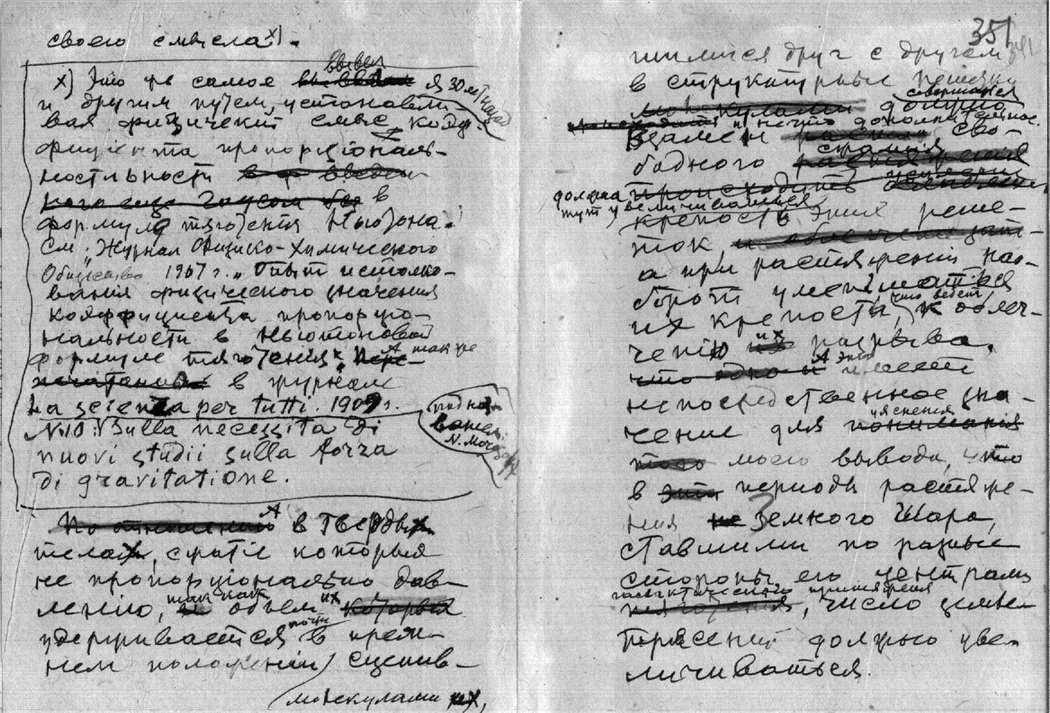 своего смысла x).
x) Это же самое вывел я 30 лет назад
и другим путем, установли-
вая физический смысл коэф-
фициента пропорціональ-
ностьности
в
формуле тяготенія Ньютона.
См. "Журнал Физико-Химического
Общества 1907 г. „Опыт истолко-
ванія физического значения
коэффициента пропорціо-
нальности в Ньютоновой
формуле тяготения". А также
в журнале
La scienza per tutti. 1909 г.
N. 10: Sulla necessita di
nuovi studii sulla forza
di gravitatione.
под на-
N. Моч
А в твердых
телах, сжатіе которых
не пропорціонально дав-
лению, так как объем их
удерживается почти в преж-
нем положеніи сцепив-
молекулами
351
шимися друг с другом
в структурные решетки
должно
взамен сво-
бодного сжатія
должна
тут увеличиваться
крепость этих реше-
ток,
а при растяженіи нао-
борот уменьшаться
их крепость, что ведет к облег-
ченію их разрыва.
А это имеет
непосредственное зна-
чение для уяснения
моего вывода, что
в периоды растяже-
ния Земного Шара,
ставшими по разные
стороны его центрами
галактического притяжения, число земле-
трясений должно уве-
личиваться.